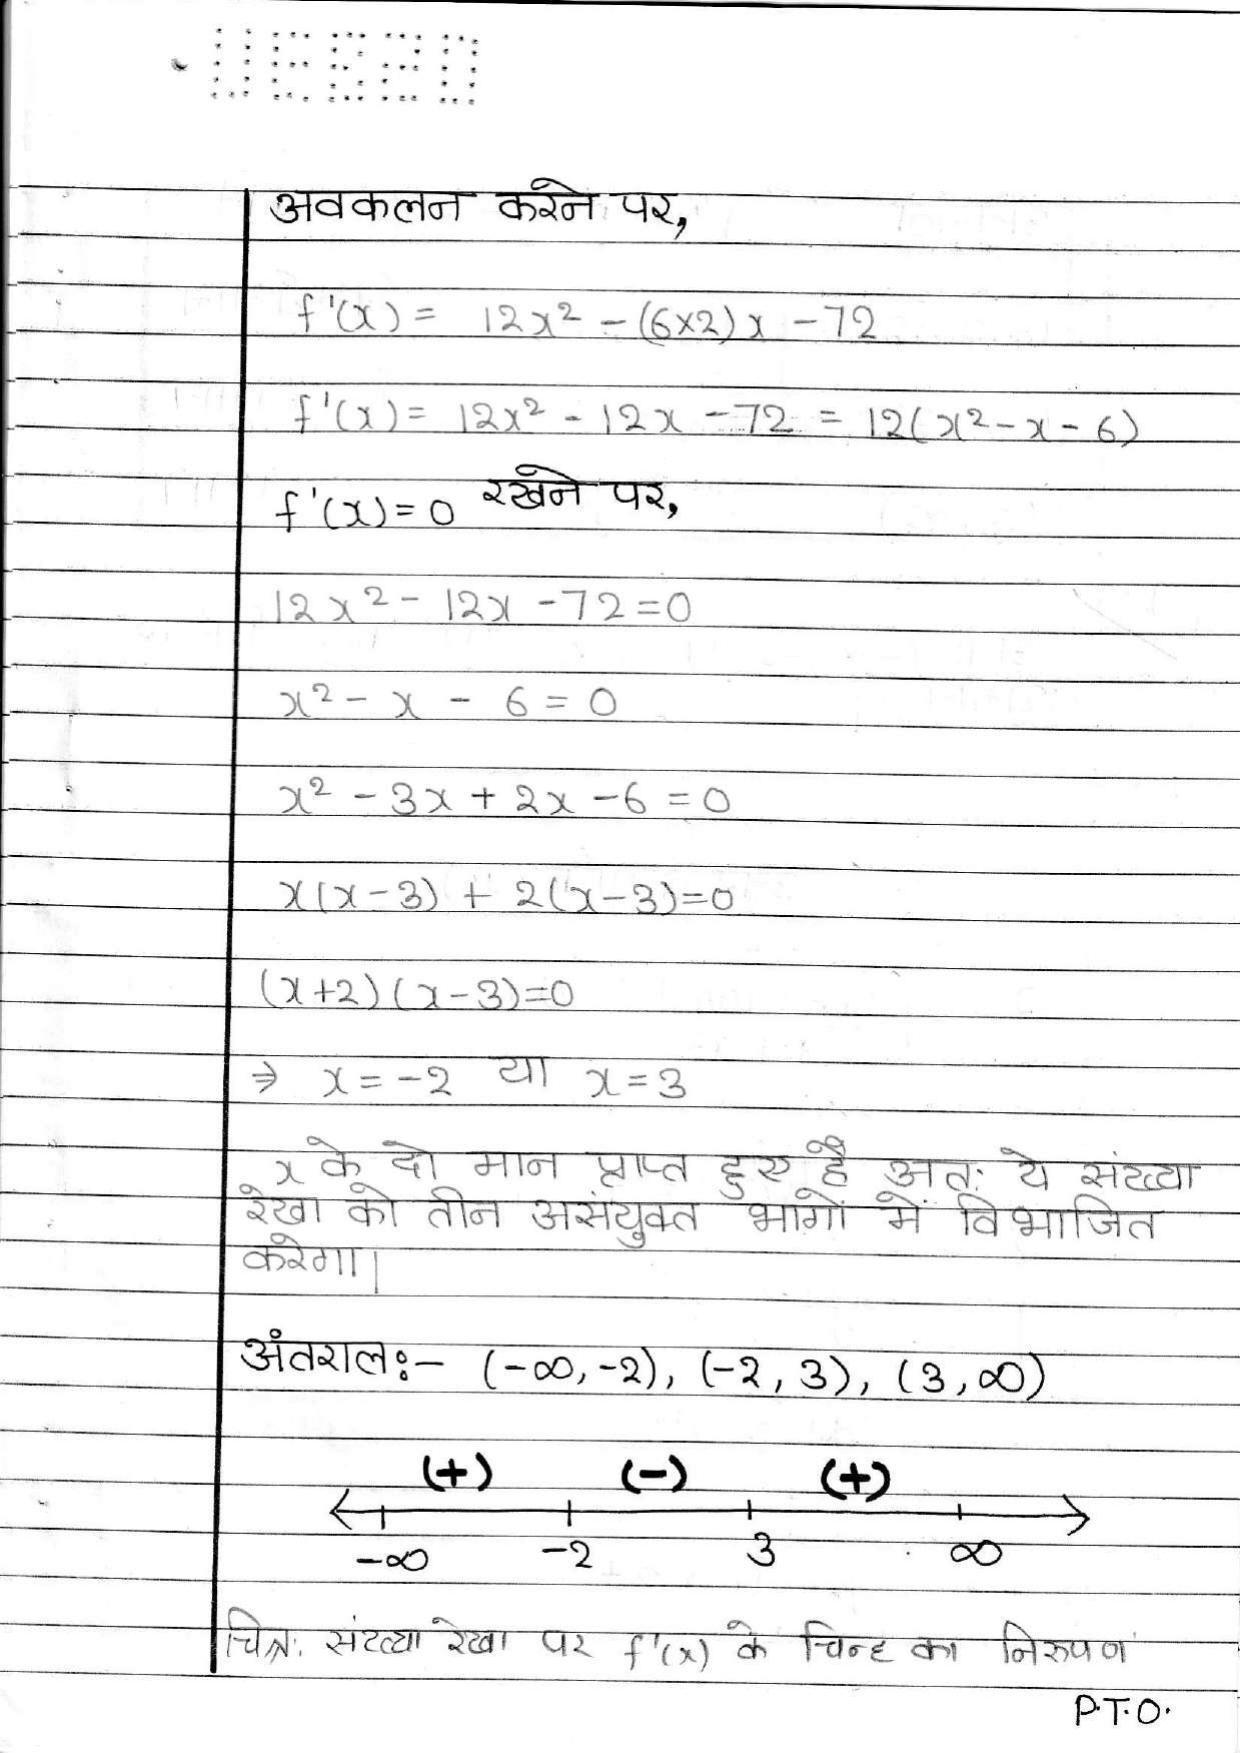 अवकलन करने पर,
f'(x) = 12x² - (6×2)x - 72
f'(x) = 12x² - 12x - 72 = 12(x² - x - 6)
f'(x) = 0 रखने पर,
12x² - 12x - 72 = 0
x² - x - 6 = 0
x² - 3x + 2x - 6 = 0
x(x-3) + 2(x-3) = 0
(x+2)(x-3) = 0
⇒ x = -2 या x = 3
x के दो मान प्राप्त हुए है अतः ये संख्या
रेखा को तीन असंयुक्त भागों में विभाजित
करेगा।
अंतराल:- (-∞, -2), (-2, 3), (3, ∞)
(+) (-) (+)
-∞ -2 3 ∞
चित्र: संख्या रेखा पर f'(x) के चिन्ह का निरुपण
P.T.O.